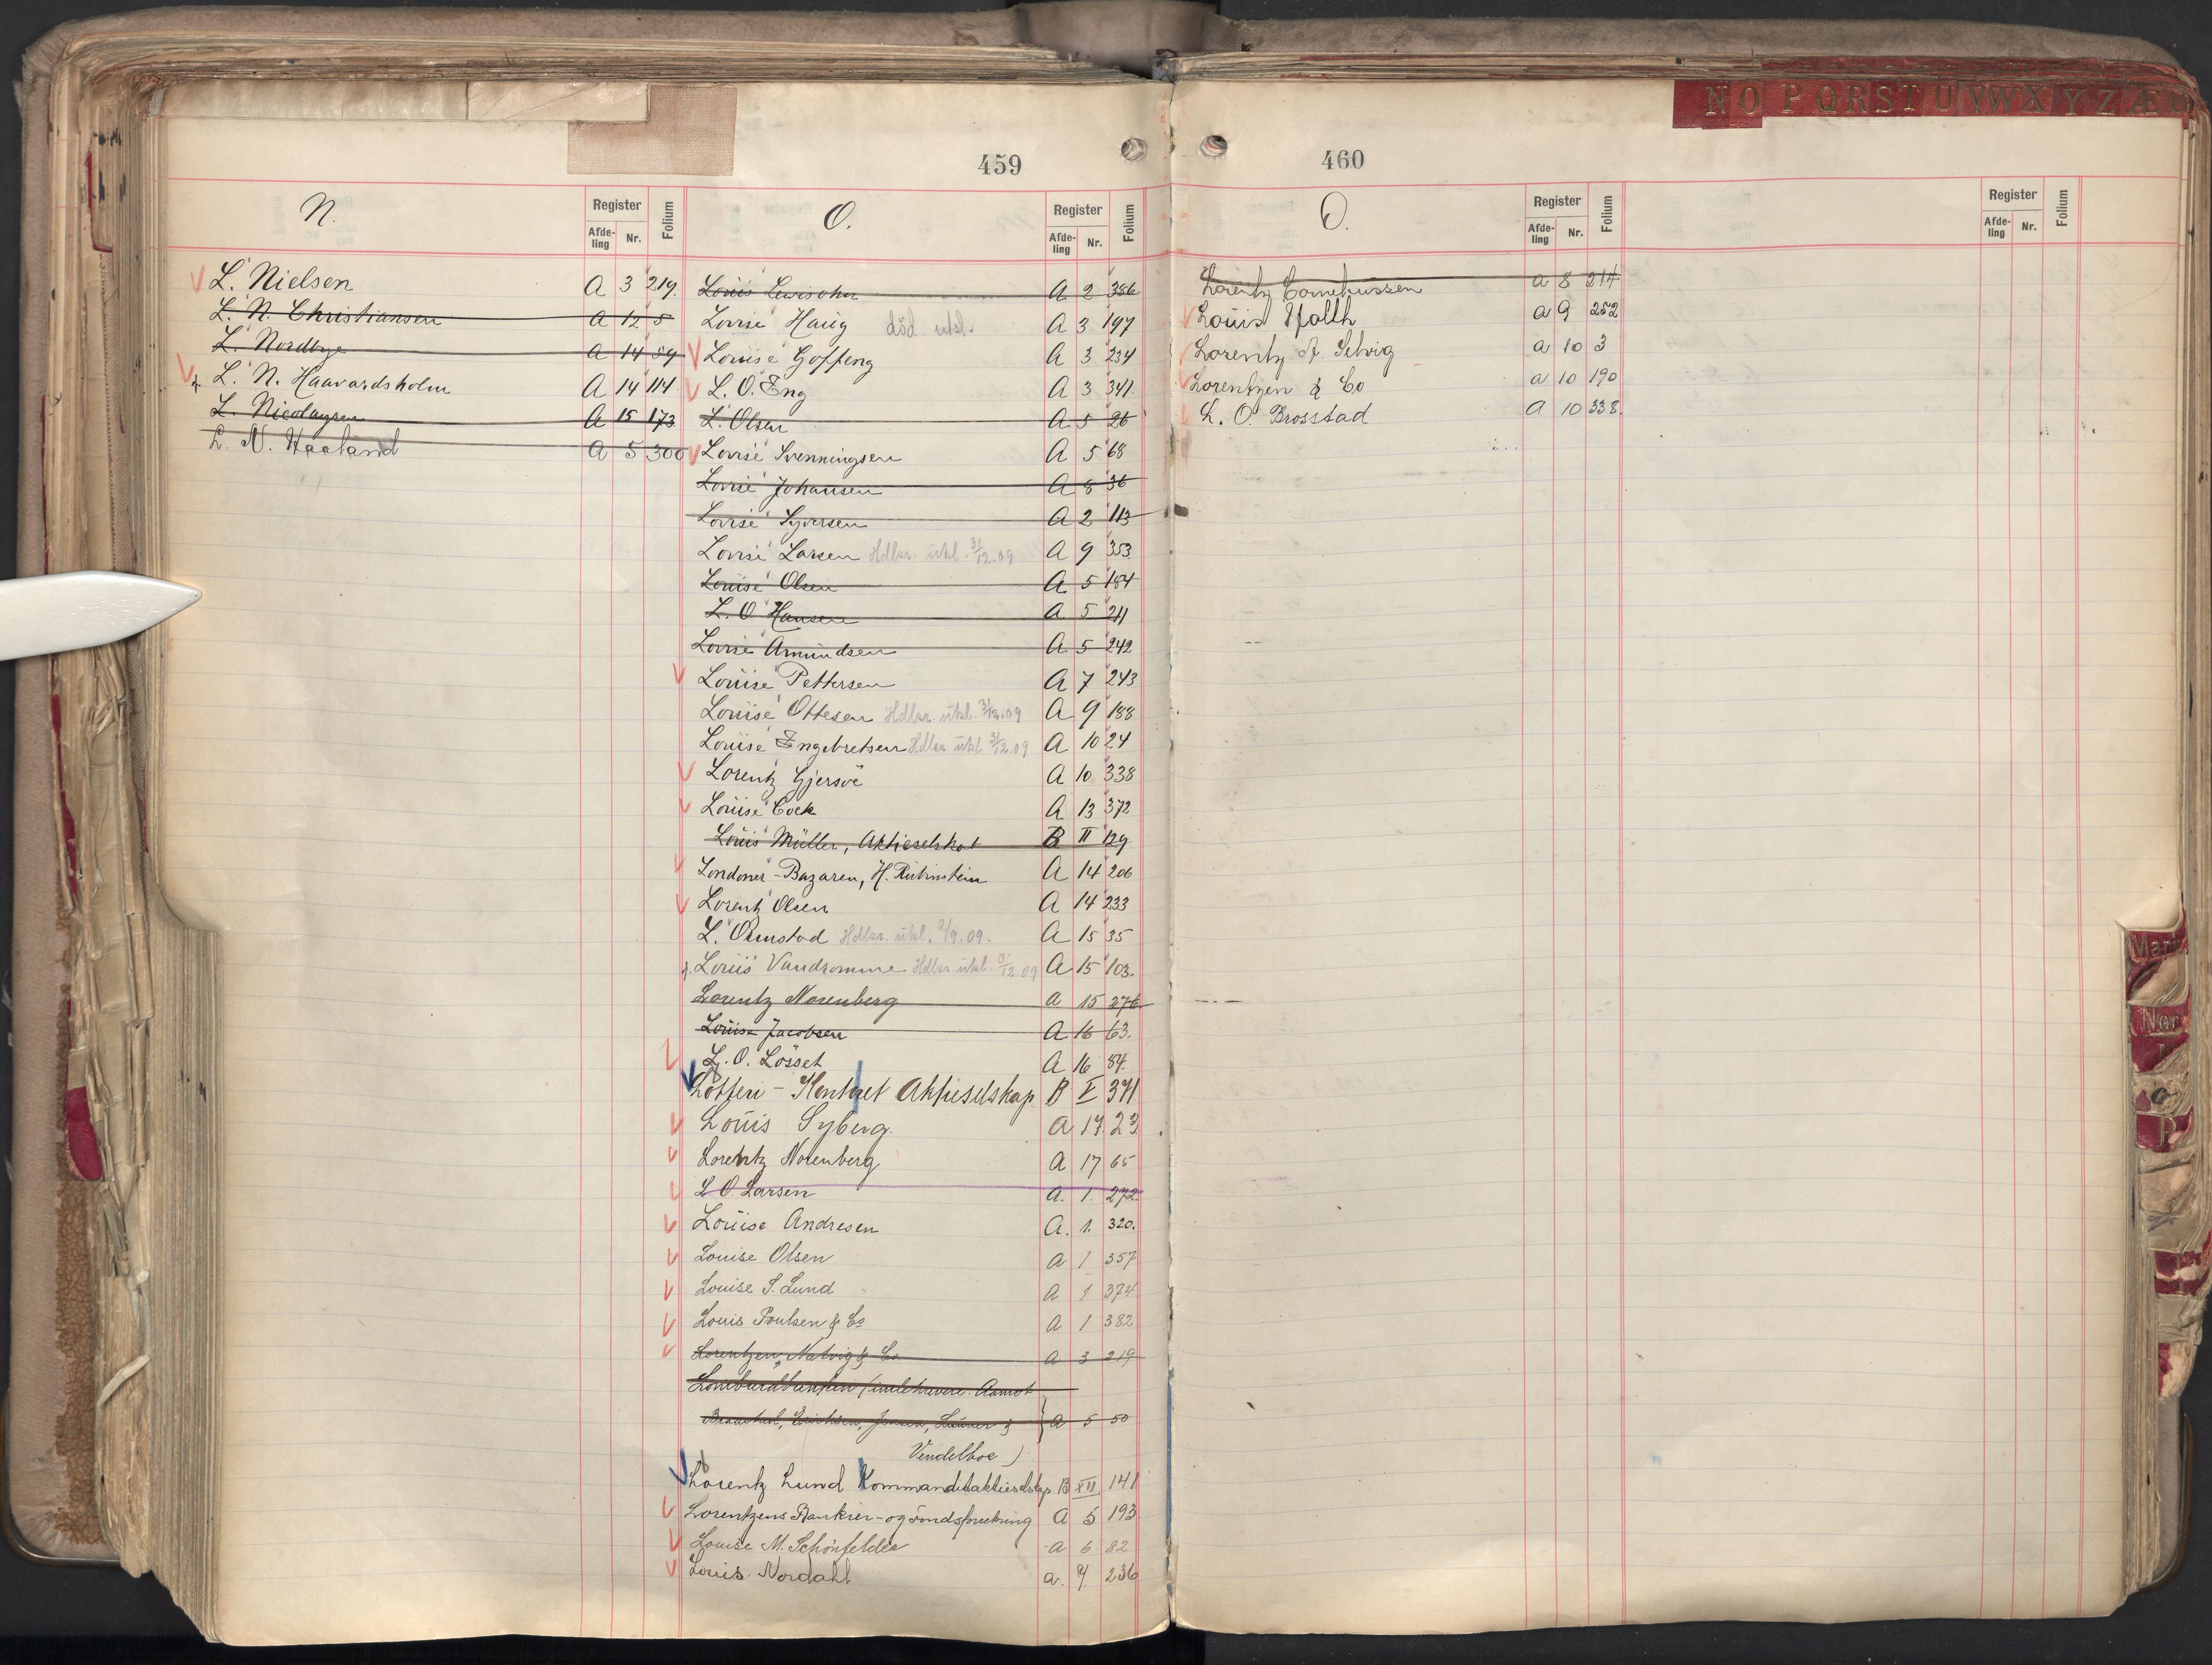 459
N.
Register
Afde-
ling
Nr.
Folium
L. Nielsen A 3 219.
L. N. Christiansen A 12 5
L. Nordbye A 14 59
L. N. Haavardsholm A 14 114
L. Nicolaysen A 15 173
L. N. Haaland A 5 300
O.
Register
Afde-
ling
Nr.
Folium
Louis Lewisohn A 2 386
Lovise Haug död utsl. A 3 197
Louise Goffeng A 3 234
L. O. Eng A 3 341.
L. Olsen A 5 26
Lovise Svenningsen A 5 68
Lovise Johansen A 8 36
Lovise Syversen A 2 113
Lovise Larsen Hdlsr. utsl. 31/12.09 A 9 353
Louise Olsen A 5 184
L. O. Hansen A 5 211
Lovise Amundsen A 5 242
Louise Pettersen A 7 243
Louise Ottesen Hdlsr. utsl. 31/12.09 A 9 188
Louise Engebretsen Hdlsr. utsl. 31/12.09 A 10 24
Lorentz Gjersöe A 10 338
Louise Cock A 13 372
Louis Müller, Aktieselskat B II 129
Londoner-Bazaren, H. Rubinstein A 14 206
Lorentz Olsen A 14 233
L. Ormstad Hdlsr. utsl. 2/9.09. A 15 35
Louis Vandromme Hdlsr. utsl. 31/12.09 A 15 103.
Lorentz Norenberg A 15 276
Louise Jacobsen A 16 63.
L. O. Lösset A 16 84.
Lotteri-Kontoret Aktieselskap B V 371
Louis Syberg. A 17 23
Lorentz Norenberg A 17 65
L O. Larsen A. 1. 272.
Louise Andresen A. 1. 320.
Louise Olsen A 1 357
Louise S. Lund A 1 374
Louis Poulsen & Co A 1 382
Lorentzen, Natvig & Co. A 3 219
Lombardbanken (indehavere: Aamot
Braathul, Erichsen, Jensen, & A 5 50
Vendelboe)
Lorentz Lund Kommanditaktieselskap B XII 141
Lorentzens Bankier-og Fondsforretning A 5 193
Louise M. Schönfelder A 6 82
Louis Nordahl a. 7. 236
460
N O P Q R S T U V W X Y Z Æ
O.
Register
Afde-
ling
Nr.
Folium
Register
Afde-
ling
Nr.
Folium
Lorentz Corneliussen a 8 214
Louis Hjolth a 9 252
Lorentz A. Selvig a 10 3
Lorentzen & Co a 10 190
L. O. Brosstad a 10 338.
Nor
O
P